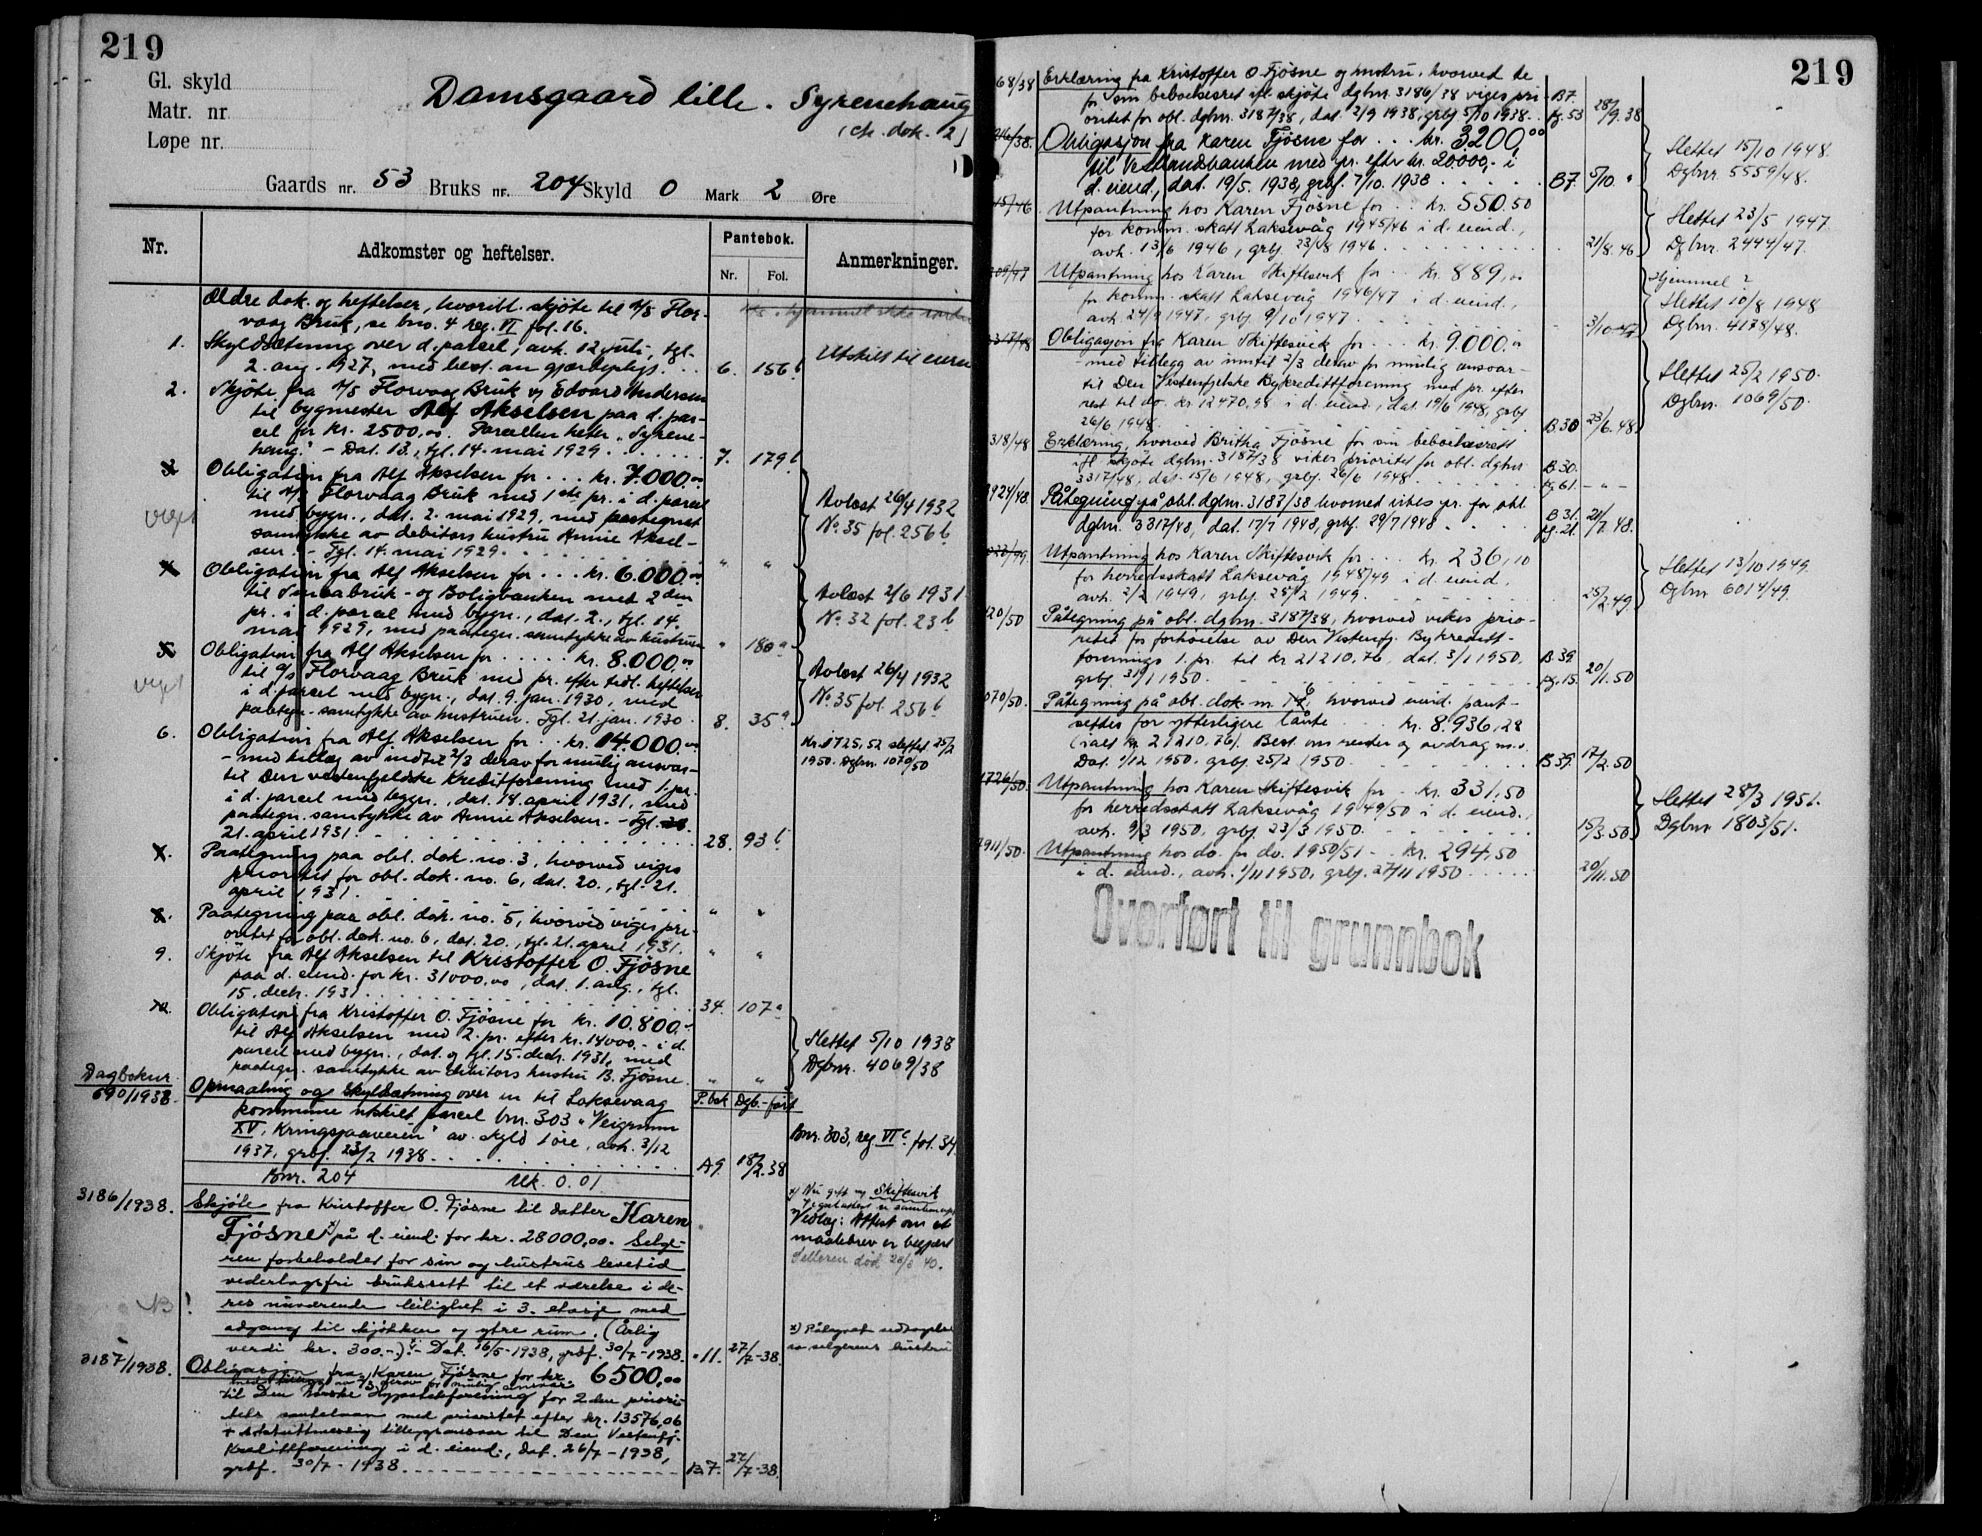 219
Gl. skyld
Matr. nr.
Løpe nr.
Damsgaard lille. Syrenehaug
(cfr. dok. 2)
Gaards nr. 53 Bruks nr. 204 Skyld 0 Mark 2 Øre
Nr.
Adkomster og heftelser.
Pantebok.
Nr. Fol.
Anmerkninger.
Ældre dok. og heftelser, hvoribl. skjøte til A/S Flor-
vaag Bruk, se bno. 4 reg. VI fol. 16.
1. Skyldsætning over d. parcel, avh. 12 juli, tgl.
2. aug. 1927, med best. om gjærdepligt. . . 6. 156 b
Utskilt til
2. Skjøte fra A/S Florvaag Bruk v/ Edvard Andersen
til bygmester Alf Akselsen paa d. par-
cel for kr. 2500,00. Parcellen heter "Syrene-
haug". - Dat. 13., tgl. 14. mai 1929. . . . 7. 179 b
3. Obligation fra Alf Akselsen for . . . kr. 7.000.00
til A/S Florvaag Bruk med 1ste pr. i d. parcel
med bygn., dat. 2. mai 1929, med paategnet
samtykke av debitors hustru Annie Aksel-
sen. - Tgl. 14. mai 1929. . . " "
veget
Avløst 26/4 1932
No. 35 fol. 256 b
4. Obligation fra Alf Akselsen for . . . kr. 6.000.00
til Smaabruk- og Boligbanken med 2den
pr. i d. parcel med bygn., dat. 2., tgl. 14.
mai 1929, med paategn. samtykke av hustruen " 180 a
Avløst 2/6 1931
No. 32 fol. 23 b
5. Obligation fra Alf Akselsen for . . . . . kr. 8.000.00
til A/S Florvaag Bruk med pr. efter tidl. heftelser
i d. parcel med bygn., dat. 9. jan. 1930, med
paategn. samtykke av hustruen. Tgl. 21. jan. 1930. 8. 35 a
veget
Avløst 26/4 1932
No. 35 fol. 256 b
6. Obligation fra Alf Akselsen for . . kr. 14.000.00
- med tillæg av indtil 2/3 derav for mulig ansvar -
til Den vestenfjeldske Kreditforening med 1. pr.
i d. parcel med bygn., dat. 14. april 1931, med
paategn. samtykke av Annie Akselsen. - Tgl.
21. april 1931. . . 28. 93 b
Kr. 1725,52 slettet 25/2
1950. Dgbnr. 1070/50
7. Paategning paa obl. dok. no. 3, hvorved viges
prioritet for obl. dok. no. 6, dat. 20., tgl. 21.
april 1931. . . " "
8. Paategning paa obl. dok. no. 5, hvorved viges pri-
oritet for obl. dok. no. 6, dat. 20., tgl. 21. april 1931. " "
9. Skjøte fra Alf Akselsen til Kristoffer O. Fjøsne
paa d. eiend. for kr. 31000.00, dat. 1. aug., tgl.
15. decb. 1931 . . . 34. 107 a
10. Obligation fra Kristoffer O. Fjøsne for kr. 10.800.-
til Alf Akselsen med 2. pr. efter kr. 14000.- i d.
parcel med bygn., dat. og tgl. 15. decb. 1931, med
paategn. samtykke av debitors hustru B. Fjøsne. " "
Slettet 5/10 1938
Dgbnr. 4069/38
Dagboknr.
690/1938. Opmaaling og skyldsætning over en til Laksevaag P.bok Dgb.-ført
kommune utskilt parcel bnr. 303 "Veigrunn
XV, Kringsjaaveien" av skyld 1 øre, avh. 3/12
1937, grbf. 23/2 1938. . . A9. 18/2.38
Bnr. 303, reg. VI c fol. 34.
Bnr. 204 Mk. 0.01
3186/1938. Skjøte fra Kristoffer O. Fjøsne til datter Karen
Fjøsne x) på d. eiend. for kr. 28000,00. Selge-
ren forbeholder for sin og hustrus levetid
vederlagsfri bruksrett til et værelse i de-
res nuværende leilighet i 3. etasje med
adgang til kjøkken og ytre rum. (Årlig
verdi kr. 300.-). - Dat. 16/5-1938, grbf. 30/7-1938. " 11. 27/7-38.
NB!
x) Nu gift og Skiftesvik
Vedlag: Attest om at
maalebrev er begjært
Selleren død 20/3 40.
3187/1938. Obligasjon fra Karen Fjøsne for kr. 6500,00
med tillegg av 2/3 derav for mulig ansvar
til Den Norske Hypotekforening for 2den priori-
tets pantelaan med prioritet efter kr. 13576,06
+ statuttmessig tilleggsansvar til Den Vestenfj.
Kreditforening i d. eiend., dat. 26/7-1938,
grbf. 30/7-1938. . . B7. 27/7-38.
219
68/38 Erklæring fra Kristoffer O. Fjøsne og hustru, hvorved de
for sin beboelsesret ifl. skjøte dgbnr. 3186/38 viges pri-
oritet for obl. dgbnr. 3187/38, dat. 2/9 1938, grbf. 5/10 1938. . B7. fg. 53 28/9.38
Obligasjon fra Karen Fjøsne for . . . kr. 3200.00
til Vestlandsbanken med pr. efter kr. 20.000,- i
d. eiend., dat. 19/5. 1938, grbf. 7/10. 1938 . . . B7. 5/10. "
Slettet 15/10 1948.
Dgbnr. 5559/48.
Utpantning hos Karen Fjøsne for . . kr. 550.50
for komm. skatt Laksevåg 1945/46 i d. eiend.,
avh. 13/6 1946, grbf. 23/8 1946. . . 21/8.46
Slettet 23/5 1947.
Dgbnr. 2444/47.
Utpantning hos Karen Skiftesvik for . . kr. 889,00
for komm. skatt Laksevåg 1946/47 i d. eiend.,
avh. 24/9 1947, grbf. 9/10 1947. . . 3/10-47
Hjemmel?
Slettet 10/8 1948
Dgbnr. 4178/48.
Obligasjon fra Karen Skiftesvik for . . . kr. 9.000.00
- med tillegg av inntil 2/3 derav for mulig ansvar -
til Den Vestenfjelske Bykredittforening med pr. efter
rest til do. kr. 12470,98 i d. eiend., dat. 19/6 1948, grbf.
26/6 1948. . . B.30 23/6.48.
Slettet 25/2 1950.
Dgbnr. 1069/50.
318/48 Erklæring, hvorved Britha Fjøsne for sin beboelsesrett
ifl. skjøte dgbnr. 3187/38 vikes prioritet for obl. dgbnr.
3317/48, dat. 15/6 1948, grbf. 26/6 1948. . . B.30. fg. 61. - " -
3924/48. Påtegning på obl. dgbnr. 3187/38 hvorved vikes pr. for obl.
dgbnr. 3317/48, dat. 17/7 1948, grbf. 29/7 1948. . . B.31. fg. 21. 21/7.48.
Utpantning hos Karen Skiftesvik for . . . kr. 236,10
for herredsskatt Laksevåg 1948/49 i d. eiend.,
avh. 2/2 1949, grbf. 28/2 1949. . . 25/2.49
Slettet 13/10 1949.
Dgbnr. 6014/49.
420/50 Påtegning på obl. dgbnr. 3187/38, hvorved vikes prio-
ritet for forhøielse av Den Vestenfj. Bykreditt-
forenings 1. pr. til kr. 21210,76, dat. 3/1 1950,
grbf. 31/1 1950. . . B.39. fg. 15. 20/1.50
1070/50. Påtegning på obl. dok. nr. 6, hvorved eiend. pant-
settes for ytterligere lånte . . . kr. 8.936,28
(ialt kr. 21210,76). Best. om renter og avdrag m.v.
Dat. 1/12 1950, grbf. 25/2 1950. . . B39. 17/2.50
1726/50. Utpantning hos Karen Skiftesvik for . . kr. 331,50
for herredsskatt Laksevåg 1949/50 i d. eiend.,
avh. 9/3 1950, grbf. 23/3 1950. . . 15/3.50
Slettet 28/3 1951.
Dgbnr. 1803/51.
7911/50. Utpantning hos do. for do. 1950/51 . . kr. 294,50
i d. eiend., avh. 1/11 1950, grbf. 27/11 1950. . . 20/11.50
Overført til grunnbok